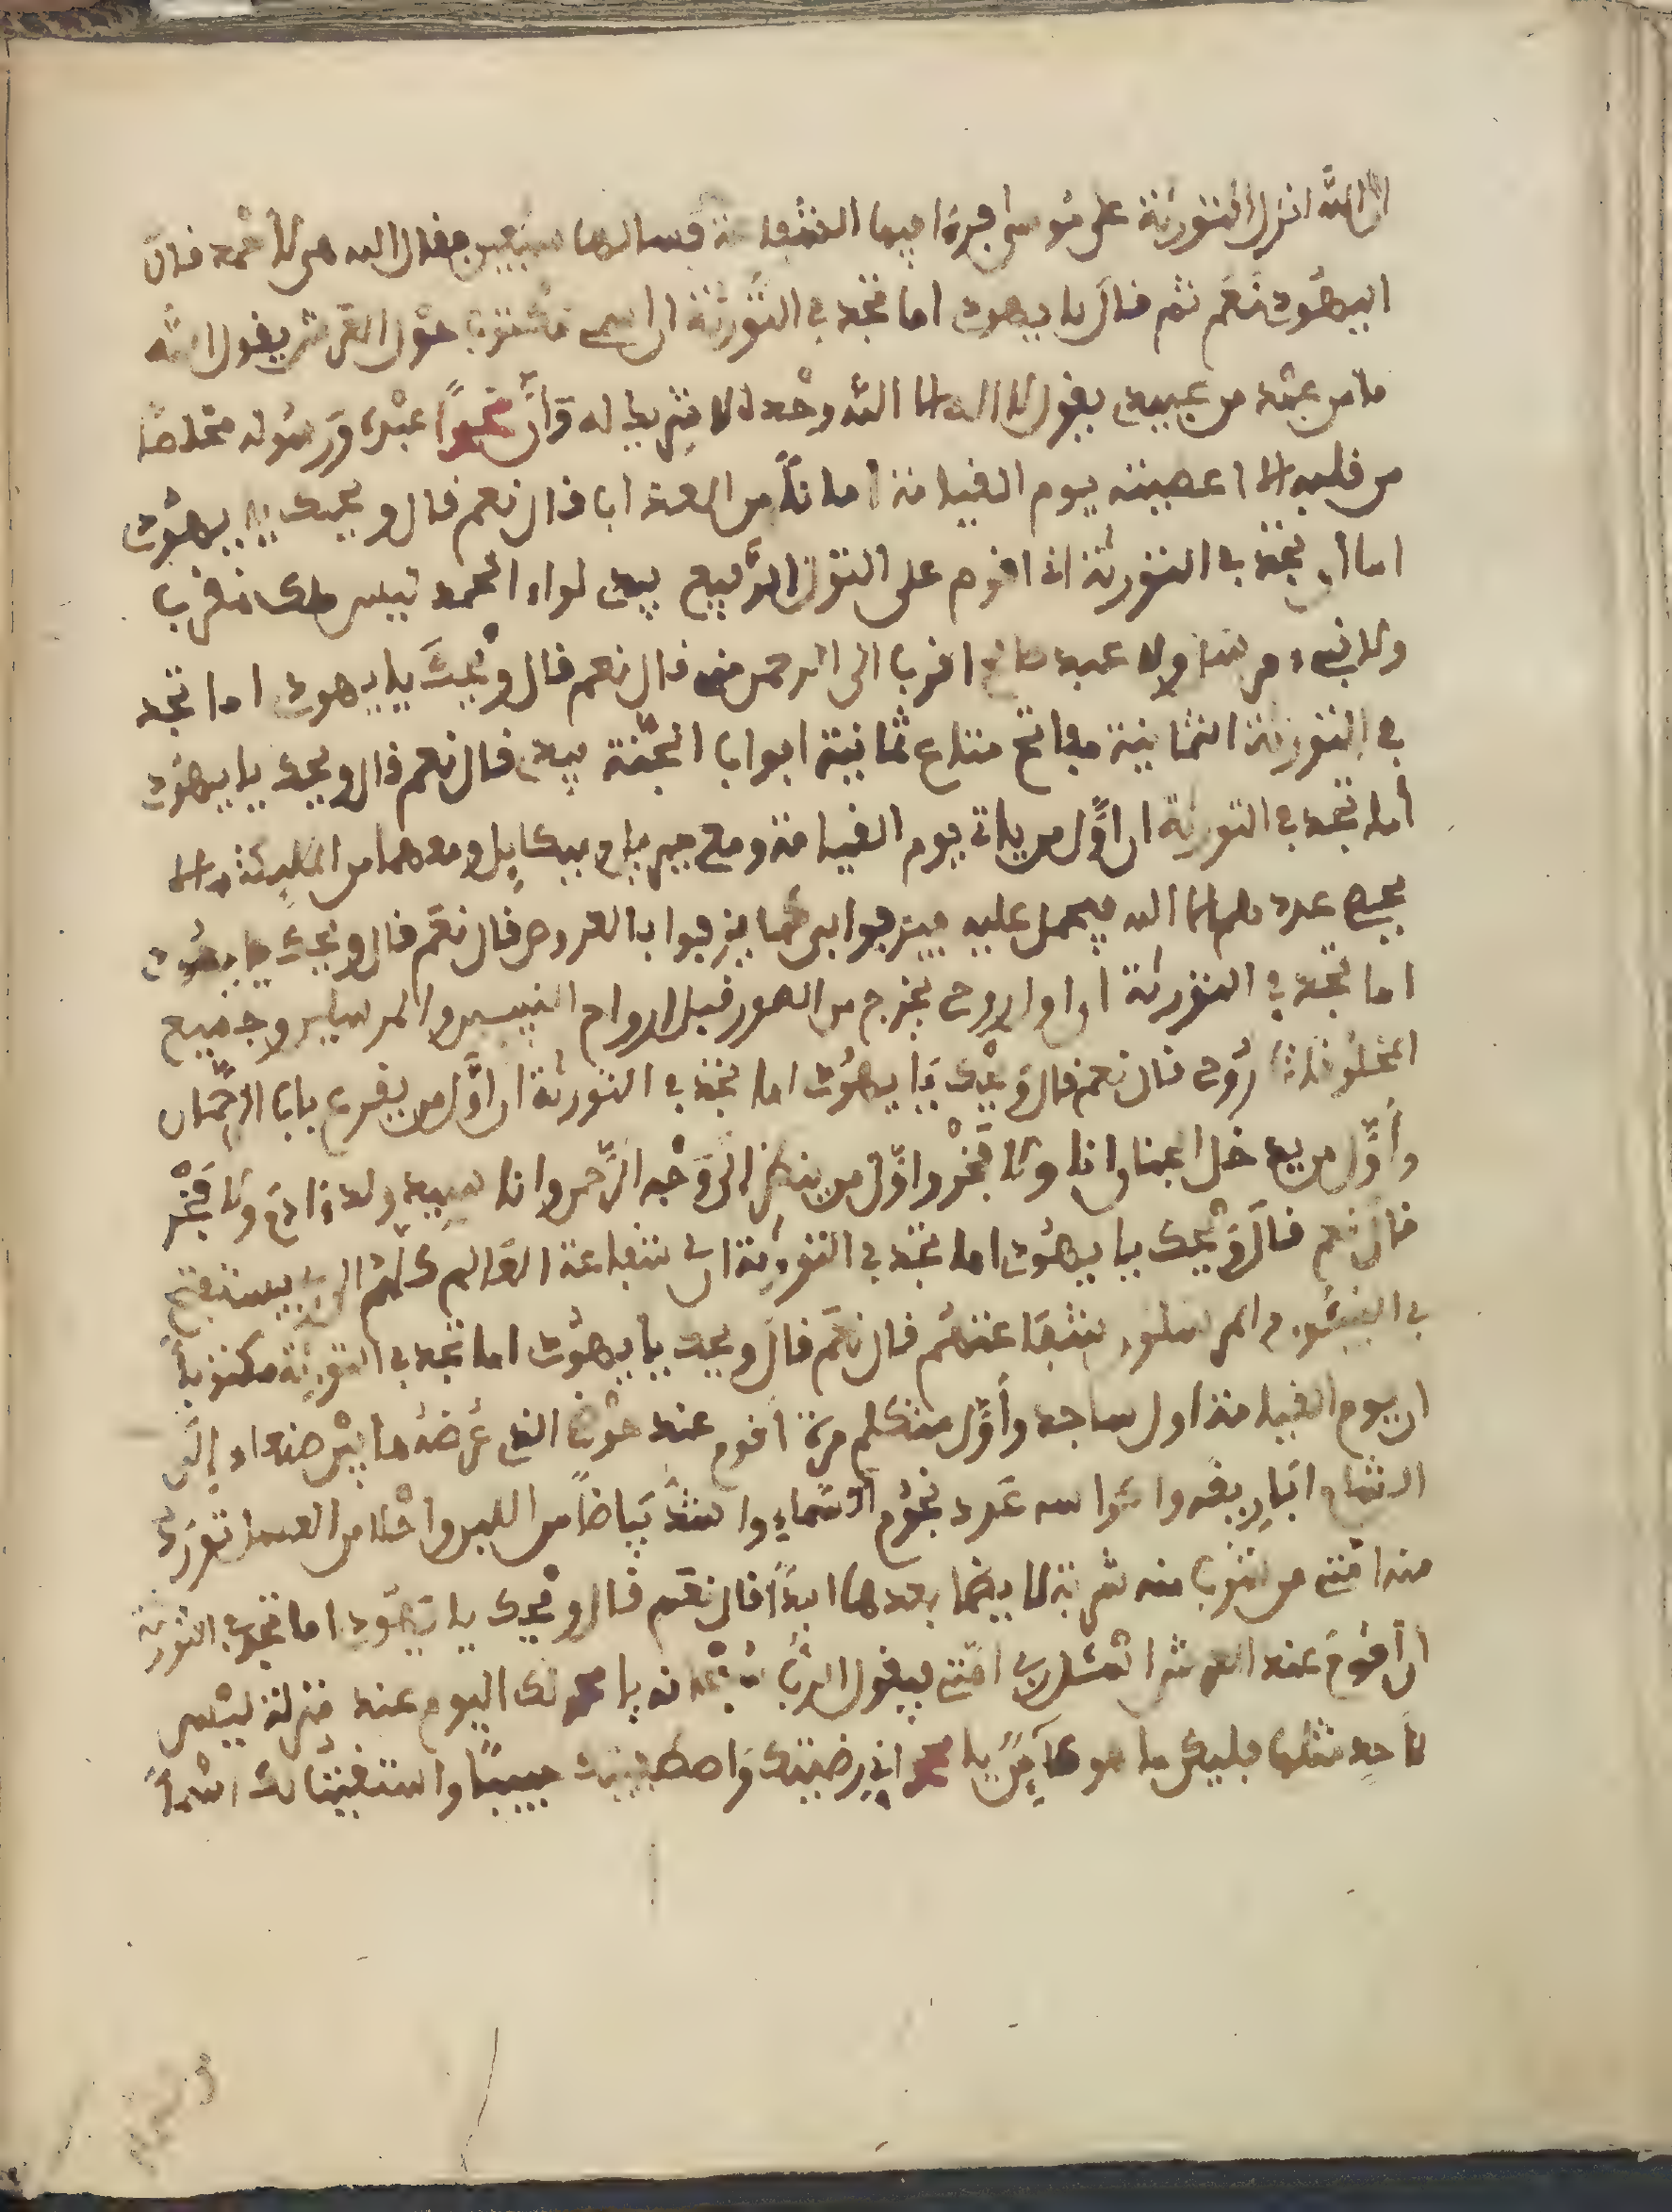 ان الله انزل التورية على موسى فجرا فيها الشفاعة فسالها سبعين فقال الله هي لاحمد قال
اليهود نعم ثم قال يا يهود اما تجد في التورية ان اسمي مكتوب حول العرش يقول الله
ما من عبد من عبيدي يقول لا اله الا الله وحده لا شريك له وأن محمدا عبده ورسوله مخلصا
من قلبه الا اعطيته يوم القيامة امانا من العذاب قال نعم قال ويحك يا يهود
اما تجد في التورية اني اقوم على التل الرفيع بيدي لواء الحمد ليس ملك مقرب
ولا نبي مرسل ولا عبد صالح اقرب الى الرحمن مني قال نعم قال ويحك يا يهود اما تجد
في التورية الثمانية مفاتح متاع ثمانية ابواب الجنة بيدي قال نعم قال ويحك يا يهود
أما تجد في التورية ان اول من ياتي يوم القيامة ومع جبريل وميكايل ومعهما من المليكة
يحصي عددهم الا الله فيحمل عليه فيزفوا بي كما يزفوا بالعروس قال نعم قال ويحك يا يهود
اما تجد في التورية ان اول روح يخرج من الصور قبل ارواح النبيين والمرسلين وجميع
المخلوقات روحي قال نعم قال ويحك يا يهود اما تجد في التورية ان اول من يقرع باب الجنان
وأول من يدخل الجنان انا ولا فخر واول من ينظر الى وجه الرحمن وانا سيد ولد ءادم ولا فخر
قال نعم قال ويحك يا يهود اما تجد في التورية ان شفاعة العالم كلهم الي يستفتح
في النبيئون والمرسلون شفاعتهم قال نعم قال ويحك يا يهود اما تجد في التورية مكتوبا
ان يوم القيامة اول ساجد وأول متكلم مرة اقوم عند حوضي الذي عرضه ما بين صنعاء إلى
الشام اباريقه واكواسه عدد نجوم السماء واشد بياضا من اللبن واحلا من العسل تورد
منه امتي من شرب منه شربة لا يظما بعدها ابدا قال نعم قال ويحك يا يهود اما تجد في التورية
ان اقوم عند العرش اتمثل امتي فيقول الرب سبحانه يا محمد لك اليوم عند منزلة ليس
لأحد مثلها فليكن ما هو كاين يا محمد اني رضيتك واصطفيتك حبيبا واشتقيت لك اسما